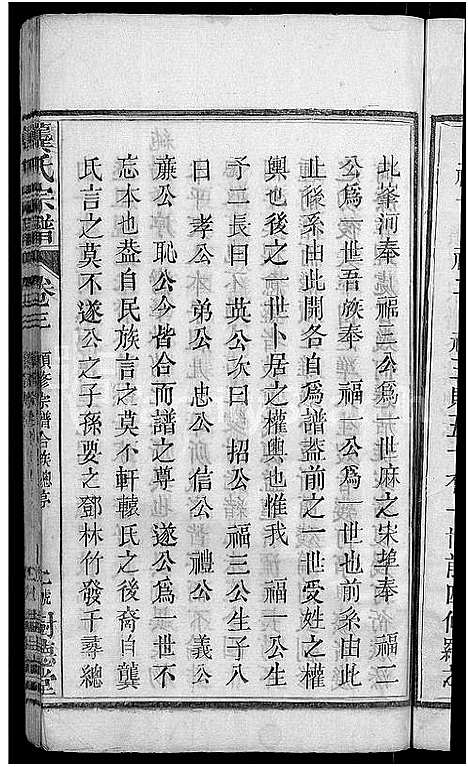 此峯河奉　福三公爲一世麻之宋埠奉　福二
公爲一世吾族奉　福一公爲一世也前系由此
止後系由此開各自爲譜蓋前之一世受姓之權
輿也後之一世卜居之權輿也惟我　福一公生
子二長曰　英公次曰　招公福三公生子八
曰　孝公　弟公　忠公　信公　禮公　義公
亷公　恥公今皆合而譜之尊　遂公爲一世不
忘本也益自民族言之莫不軒轅氏之後裔自龔
氏言之莫不遂公之子孫要之鄧林竹發千尋總
龔氏宗譜
卷三
續修宗譜合族總序
樹德堂